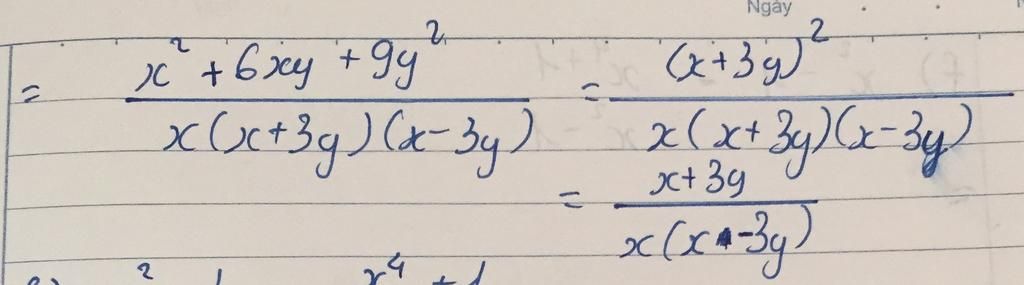 Ngày
= \frac{x^2 + 6xy + 9y^2}{x(x+3y)(x-3y)} = \frac{(x+3y)^2}{x(x+3y)(x-3y)}
= \frac{x+3y}{x(x-3y)}
x^4 + 1